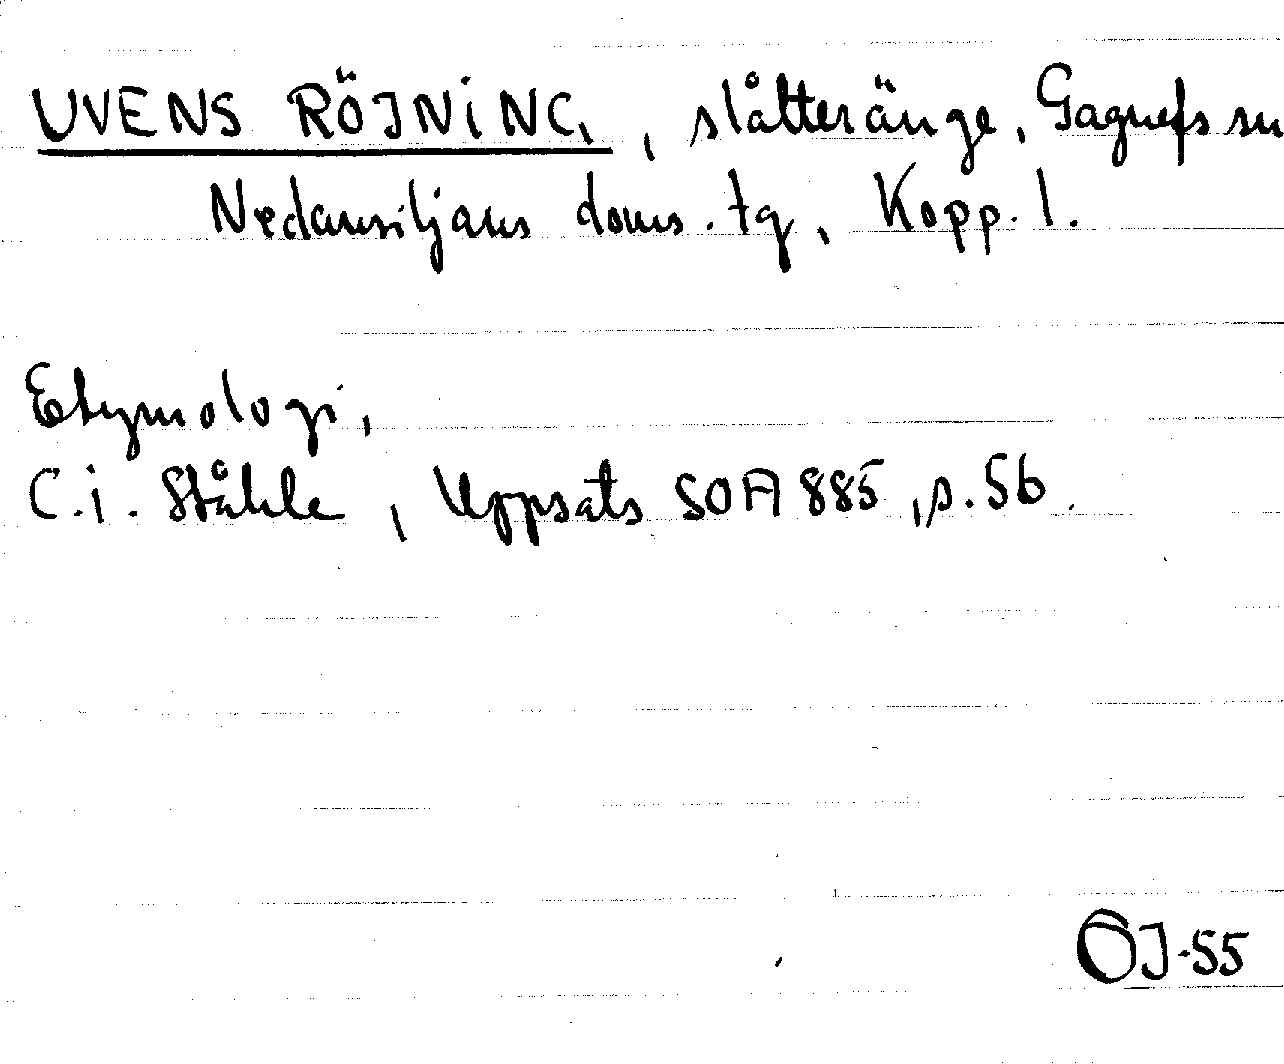 UVENS RÖJNING, slåtteränge, Gagnefs sn
Nedansiljans doms. tg, Kopp. l.
Etymologi,
C.i. Ståhle, Uppsats SOA 885, s. 56.
ÖJ-55